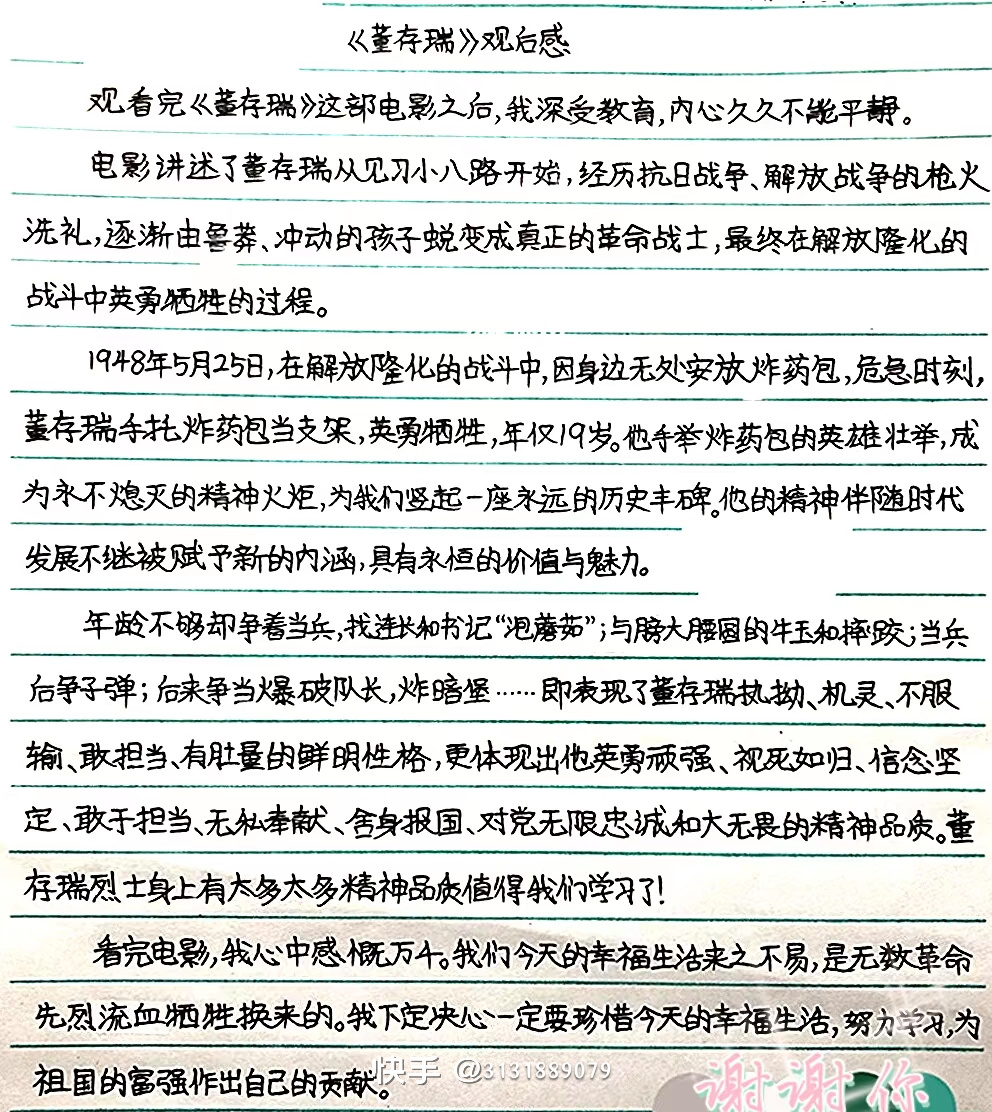 《董存瑞》观后感
观看完《董存瑞》这部电影之后,我深受教育,内心久久不能平静。
电影讲述了董存瑞从见习小八路开始,经历抗日战争、解放战争的枪火
洗礼,逐渐由鲁莽、冲动的孩子蜕变成真正的革命战士,最终在解放隆化的
战斗中英勇牺牲的过程。
1948年5月25日,在解放隆化的战斗中,因身边无处安放炸药包,危急时刻,
董存瑞手托炸药包当支架,英勇牺牲,年仅19岁。他手举炸药包的英雄壮举,成
为永不熄灭的精神火炬,为我们竖起一座永远的历史丰碑。他的精神伴随时代
发展不继被赋予新的内涵,具有永恒的价值与魅力。
年龄不够却争着当兵,找连长和书记“泡蘑茹”;与膀大腰圆的牛玉和摔跤;当兵
后争子弹;后来争当爆破队长,炸暗堡……即表现了董存瑞执拗、机灵、不服
输、敢担当、有肚量的鲜明性格,更体现出他英勇顽强、视死如归、信念坚
定、敢于担当、无私奉献、舍身报国、对党无限忠诚和大无畏的精神品质。董
存瑞烈士身上有太多太多精神品质值得我们学习了!
看完电影,我心中感慨万千。我们今天的幸福生活来之不易,是无数革命
先烈流血牺牲换来的。我下定决心一定要珍惜今天的幸福生活,努力学习,为
祖国的富强作出自己的贡献。
快手 @3131889079
谢谢你